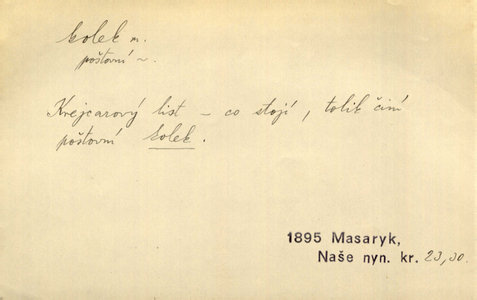 kolek m.
poštovní ~.
Krejcarový list – co stojí, tolik činí
poštovní kolek.
1895 Masaryk,
Naše nyn. kr. 23,30.